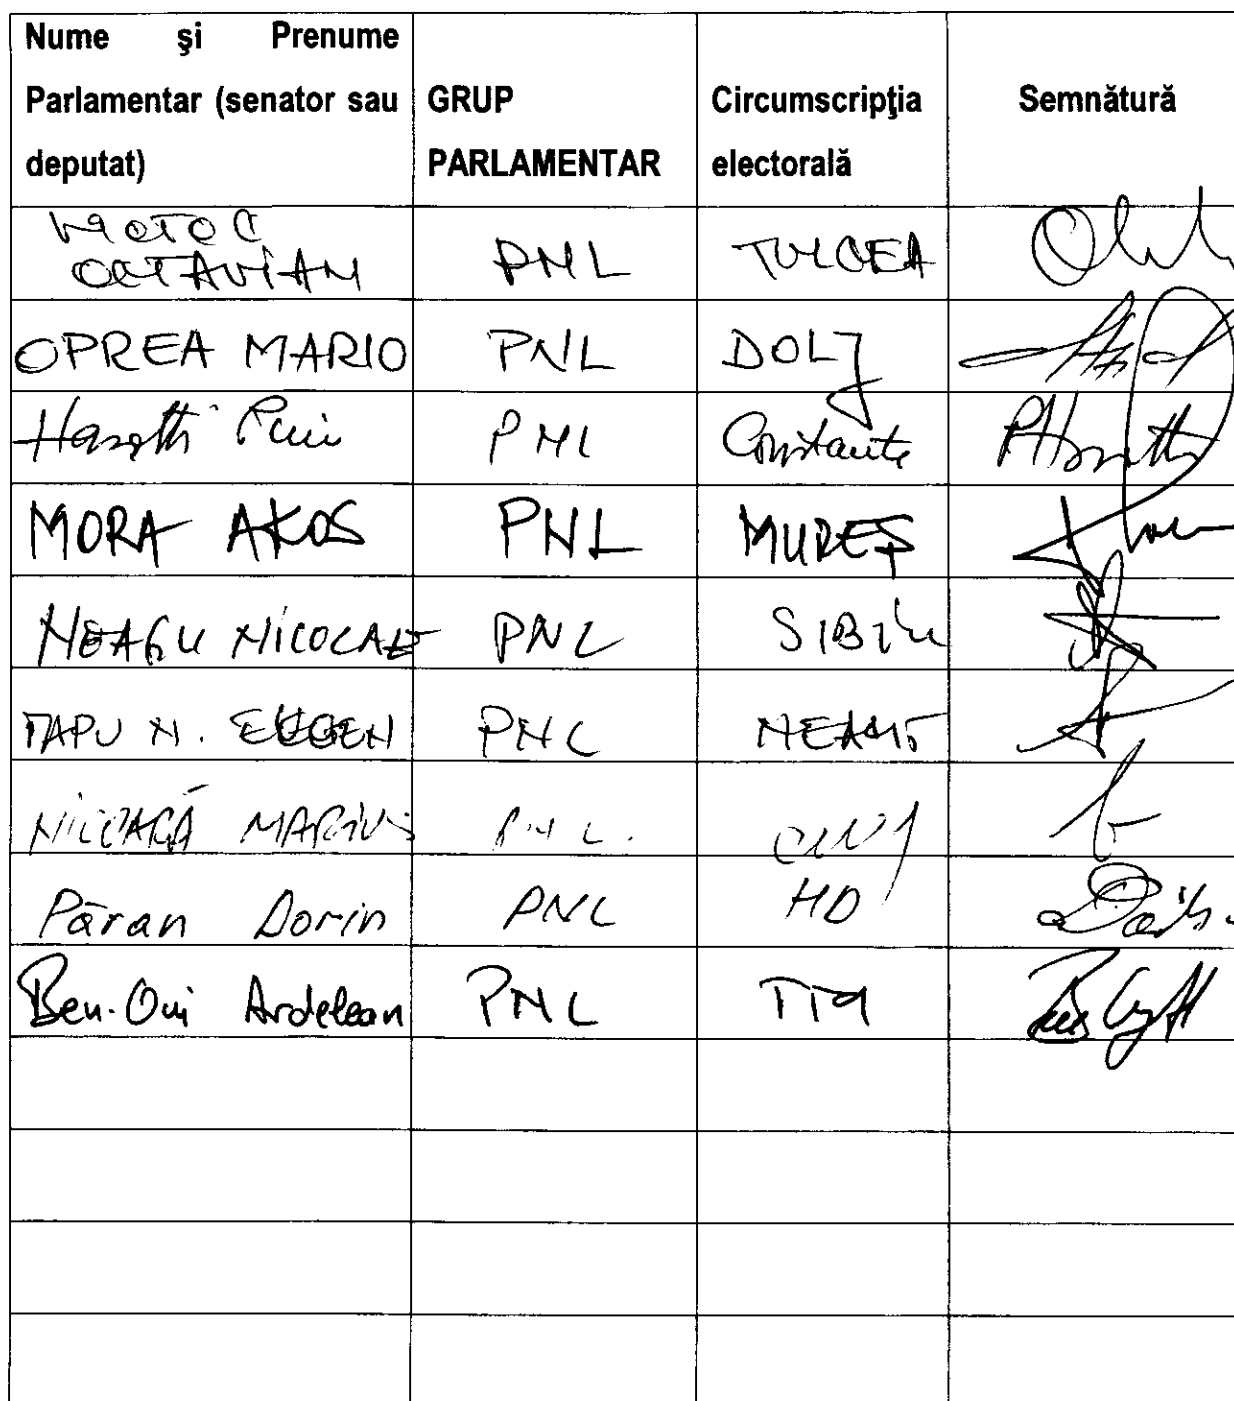 Nume şi Prenume
Parlamentar (senator sau
deputat)
GRUP
PARLAMENTAR
Circumscripţia
electorală
Semnătură
MOTOC
OCTAVIAN PNL TULCEA
OPREA MARIO PNL DOLJ
PNL Constanta
MORA AKOS PNL MUREŞ
NEAGU NICOLAE PNL SIBIU
ŢAPU N. EUGEN PNL NEAMŢ
NICOARĂ MARIUS PNL. CLUJ
Păran Dorin PNL HD
Ben-Oni Ardelean PNL